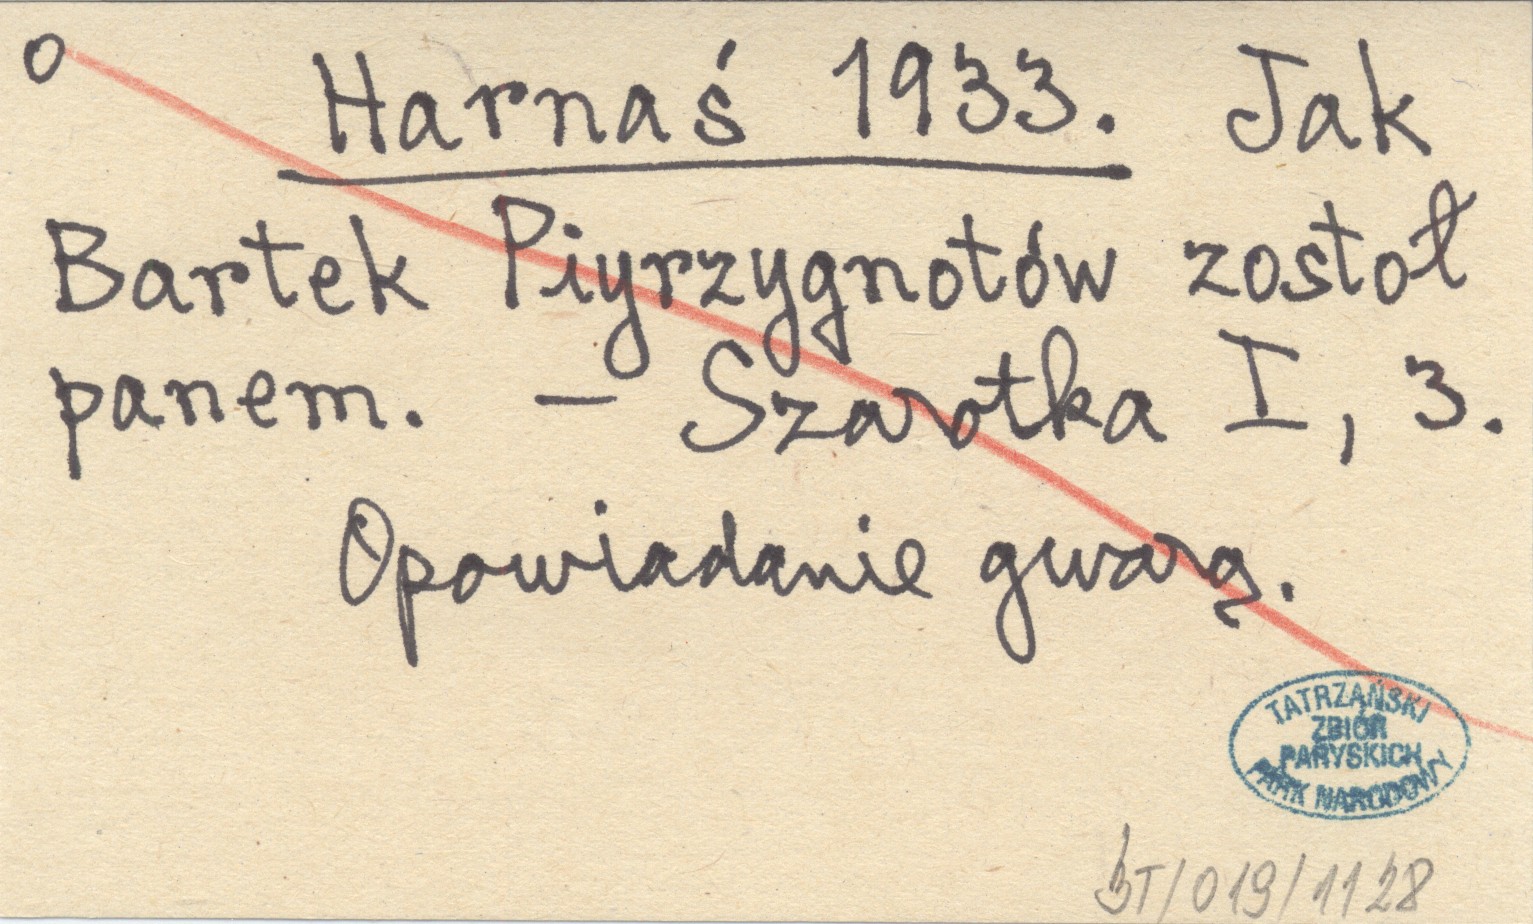 o Harnaś 1933. Jak
Bartek Piyrzygnotów zostoł
panem. – Szarotka I, 3.
Opowiadanie gwarą.
TATRZAŃSKI
ZBIÓR
PARYSKICH
PARK NARODOWY
BT/019/1128